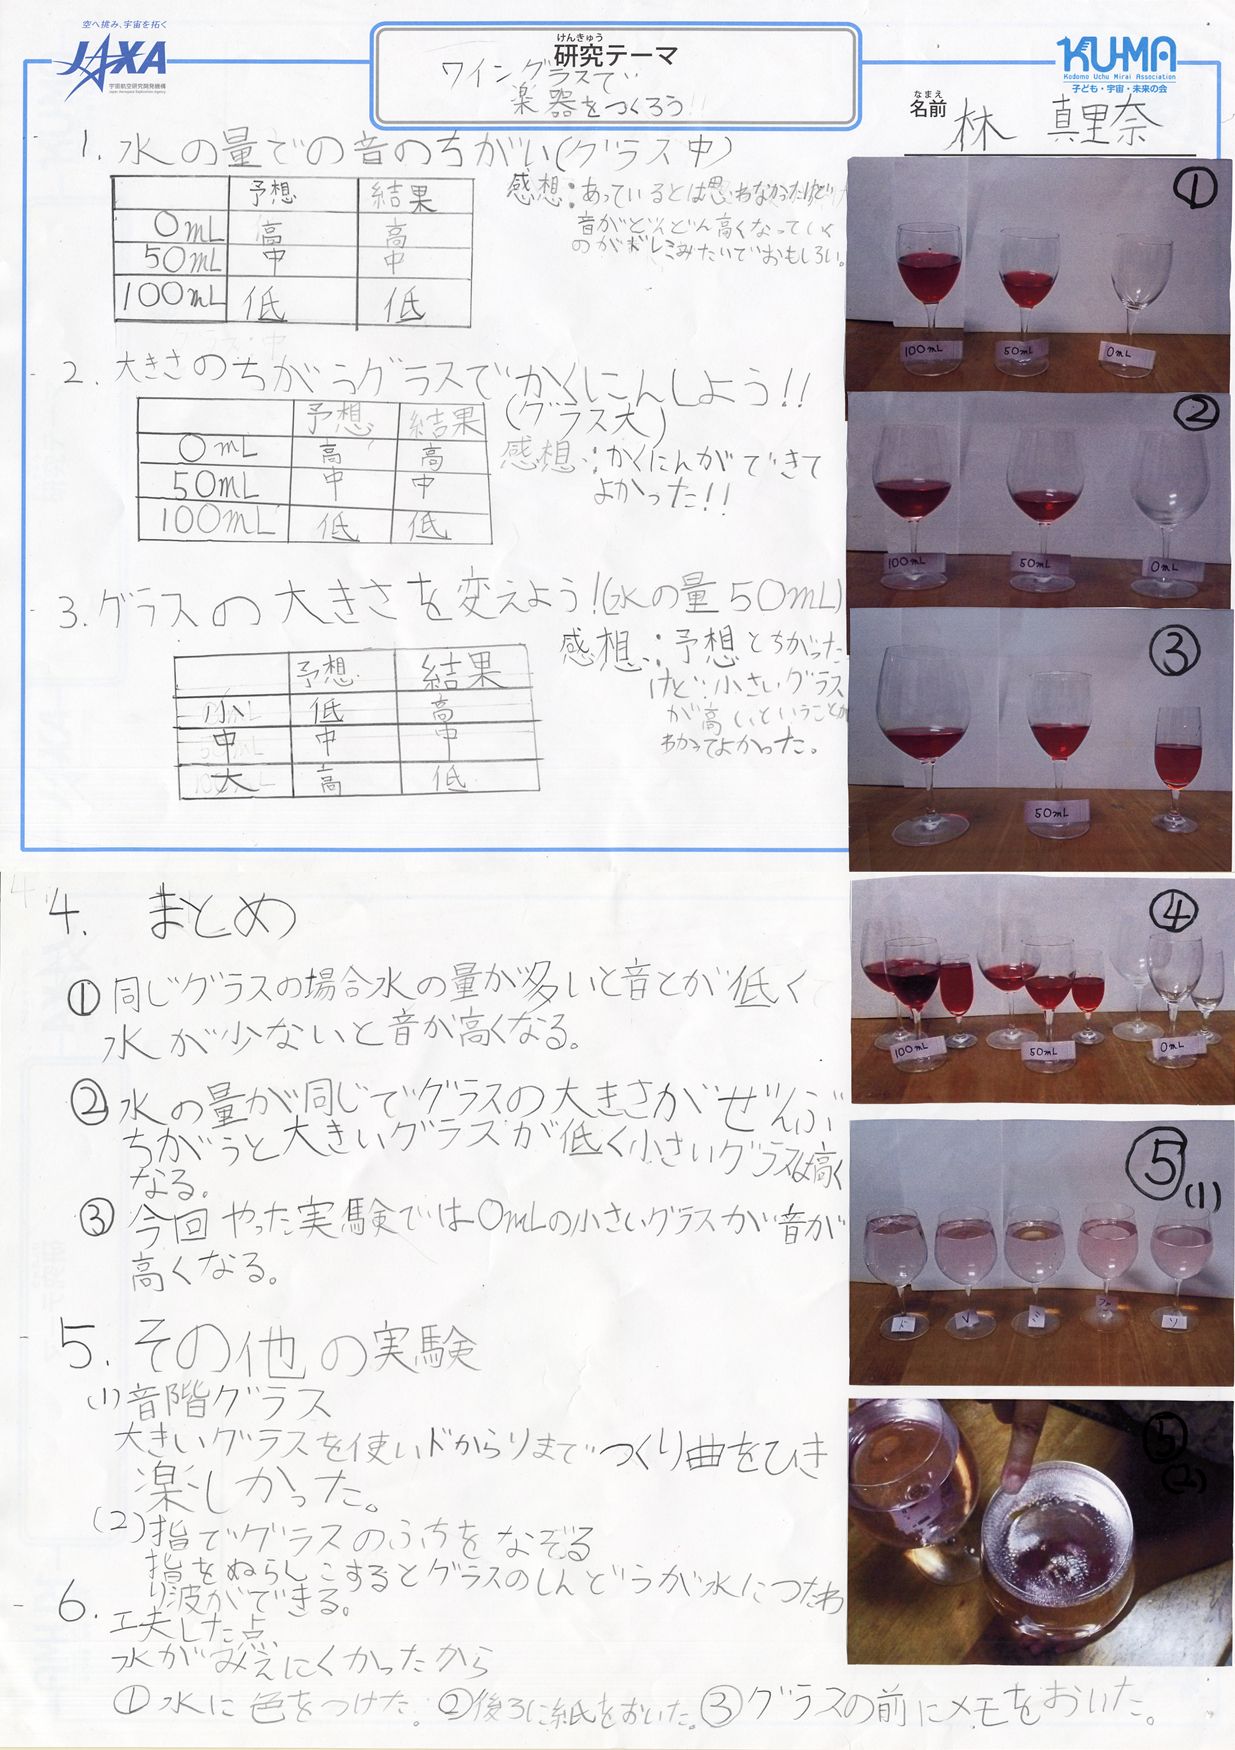 空へ挑み、宇宙を拓く
JAXA
宇宙航空研究開発機構
Japan Aerospace Exploration Agency
けんきゅう
研究テーマ
ワイングラスで
楽器をつくろう!!
KU-MA
Kodomo Uchu Mirai Association
子ども・宇宙・未来の会
なまえ
名前
林 真里奈
1. 水の量での音のちがい(グラス中)
予想 結果
0mL 高 高
50mL 中 中
100mL 低 低
感想:あっているとは思わなかったけど
音がどんどん高くなっていく
のがドレミみたいでおもしろい。
2. 大きさのちがうグラスでかくにんしよう!!
(グラス大)
予想 結果
0mL 高 高
50mL 中 中
100mL 低 低
感想:かくにんができて
よかった!!
3. グラスの大きさを変えよう!(水の量50mL)
予想 結果
小 低 高
中 中 中
大 高 低
感想:予想とちがった
けど小さいグラス
が高いということが
わかってよかった。
4. まとめ
①同じグラスの場合水の量が多いと音とが低く
水が少ないと音が高くなる。
②水の量が同じでグラスの大きさがぜんぶ
ちがうと大きいグラスが低く小さいグラスは高く
なる。
③今回やった実験では0mLの小さいグラスが音が
高くなる。
5. その他の実験
(1)音階グラス
大きいグラスを使いドからソまでつくり曲をひき
楽しかった。
(2)指でグラスのふちをなぞる
指をぬらしこするとグラスのしんどうが水につたわ
り波ができる。
6. 工夫した点
水がみえにくかったから
①水に色をつけた。②後ろに紙をおいた。③グラスの前にメモをおいた。
①
100mL 50mL 0mL
②
100mL 50mL 0mL
③
50mL
④
100mL 50mL 0mL
⑤
(1)
ド レ ミ ファ ソ
⑤
(2)